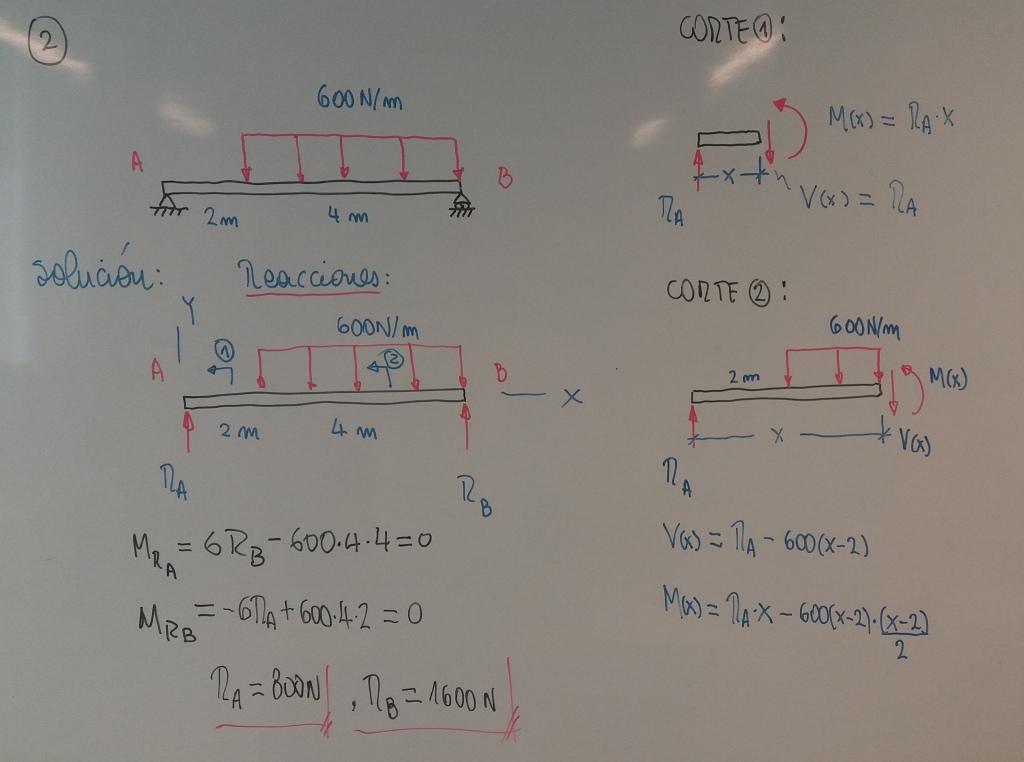 2
600N/m
A
B
2m 4m
Solución: Reacciones:
Y
600N/m
A 1 2 B
x
2m 4m
RA RB
MRA = 6RB - 600·4·4 = 0
MRB = -6RA + 600·4·2 = 0
RA = 800N , RB = 1600N
CORTE 1:
M(x) = RA·x
x
RA
V(x) = RA
CORTE 2:
600N/m
2m
M(x)
x
V(x)
RA
V(x) = RA - 600(x-2)
M(x) = RA·x - 600(x-2)·(x-2)
2